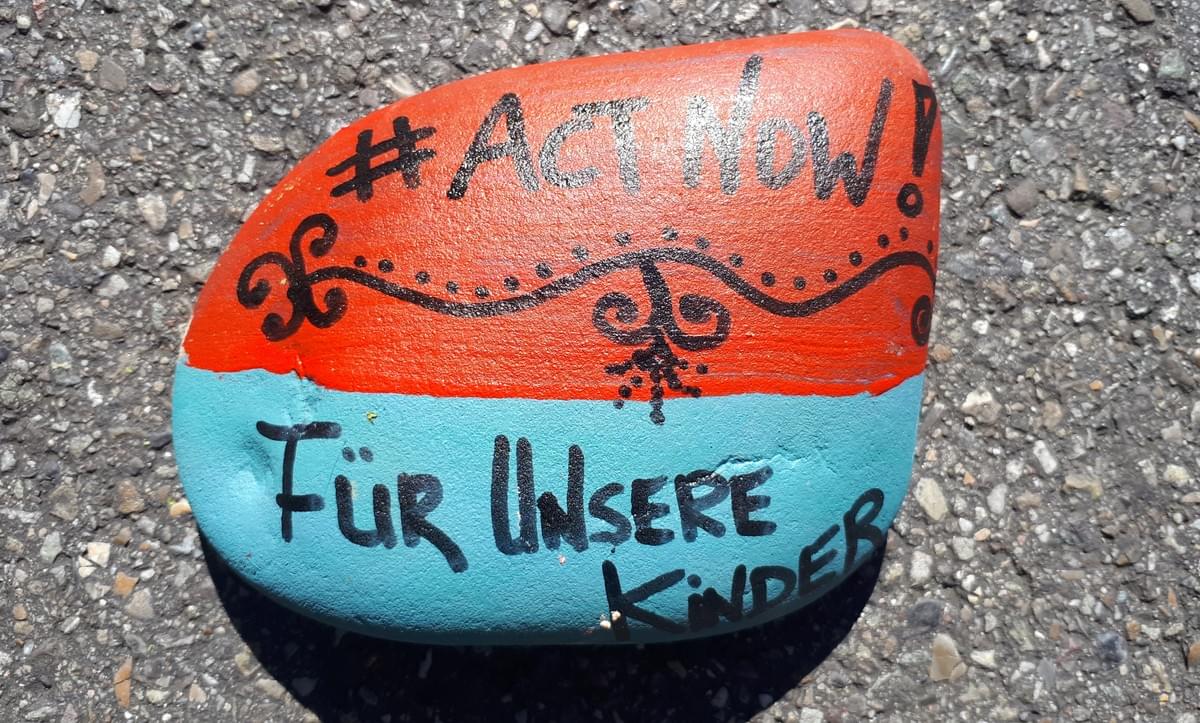 # ACT NOW!
FÜR UNSERE
KiNDER